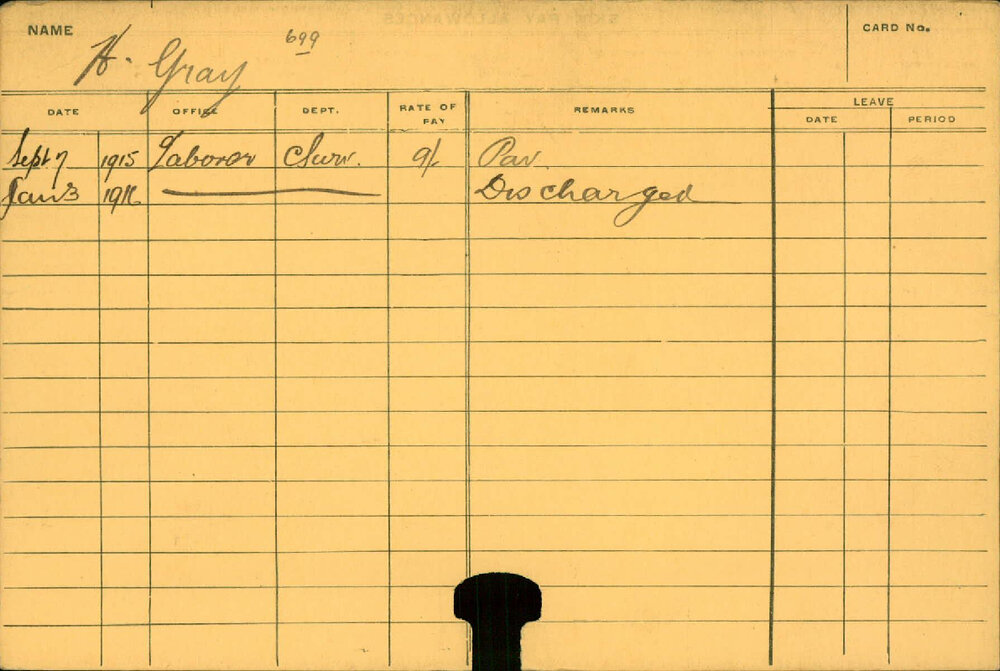 NAME H. Gray 699 CARD No.
DATE OFFICE DEPT. RATE OF PAY REMARKS LEAVE
DATE PERIOD
Sept 7 1915 Laborer Surv. 9/- Pav.
Jan 3 1916 Discharged